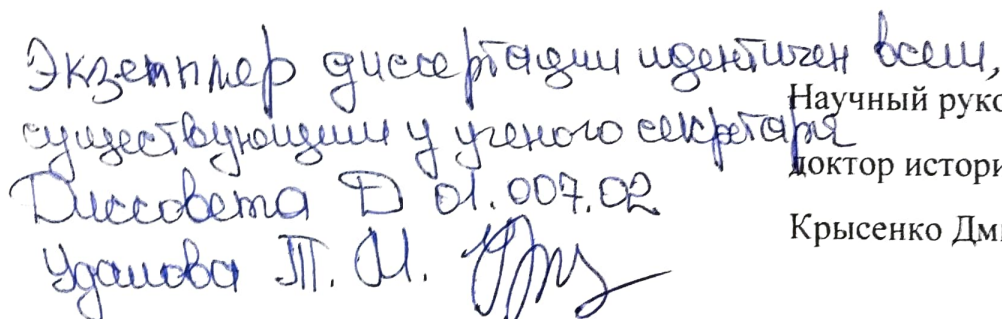 Экземпляр диссертации идентичен всем,
существующим у ученого секретаря
Диссовета Д 01.007.02
Удалова Т. И.
Научный руко
доктор истори
Крысенко Дми